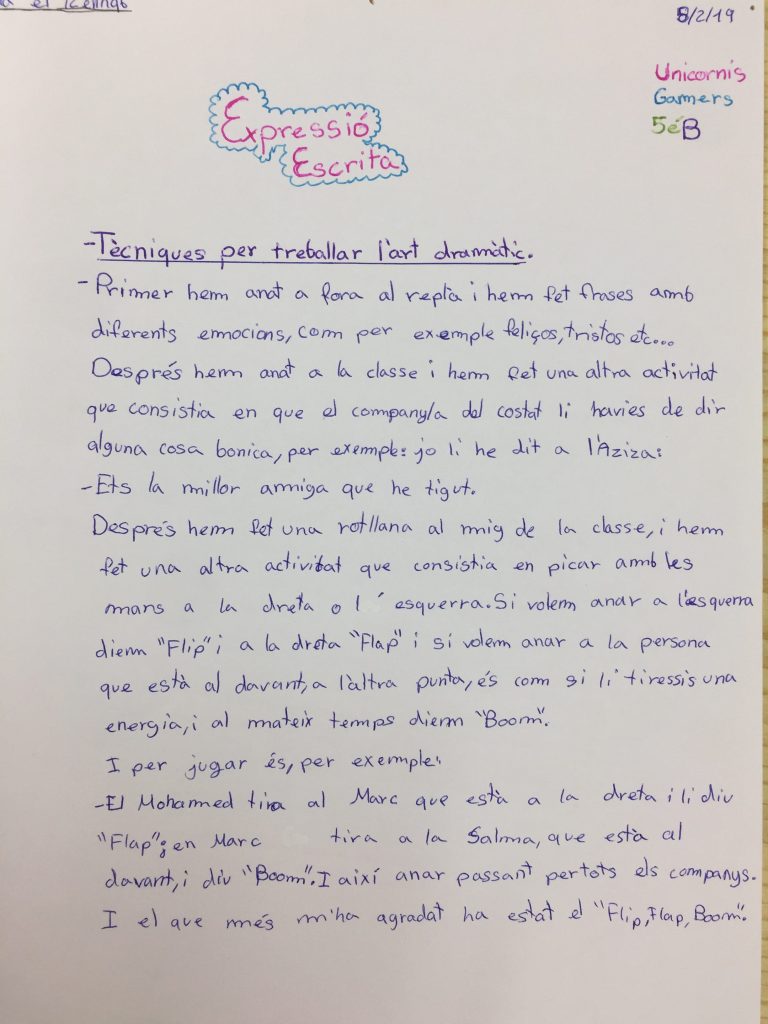 a el
8/2/19
Unicornis
Gamers
5é B
Expressió
Escrita
-Tècniques per treballar l'art dramàtic.
-Primer hem anat a fora al replà i hem fet frases amb
diferents emocions, com per exemple feliços, tristos etc...
Després hem anat a la classe i hem fet una altra activitat
que consistia en que el company/a del costat li havies de dir
alguna cosa bonica, per exemple: jo li he dit a l'Aziza:
-Ets la millor amiga que he tigut.
Després hem fet una rotllana al mig de la classe, i hem
fet una altra activitat que consistia en picar amb les
mans a la dreta o l'esquerra. Si volem anar a l'esquerra
diem "Flip" i a la dreta "Flap" i si volem anar a la persona
que està al davant, a l'altra punta, és com si li tiressis una
energia, i al mateix temps diem "Boom".
I per jugar és, per exemple:
-El Mohamed tira al Marc que està a la dreta i li diu
"Flap"; en Marc tira a la Salma, que està al
davant, i diu "Boom". I així anar passant per tots els companys.
I el que més m'ha agradat ha estat el "Flip, Flap, Boom".